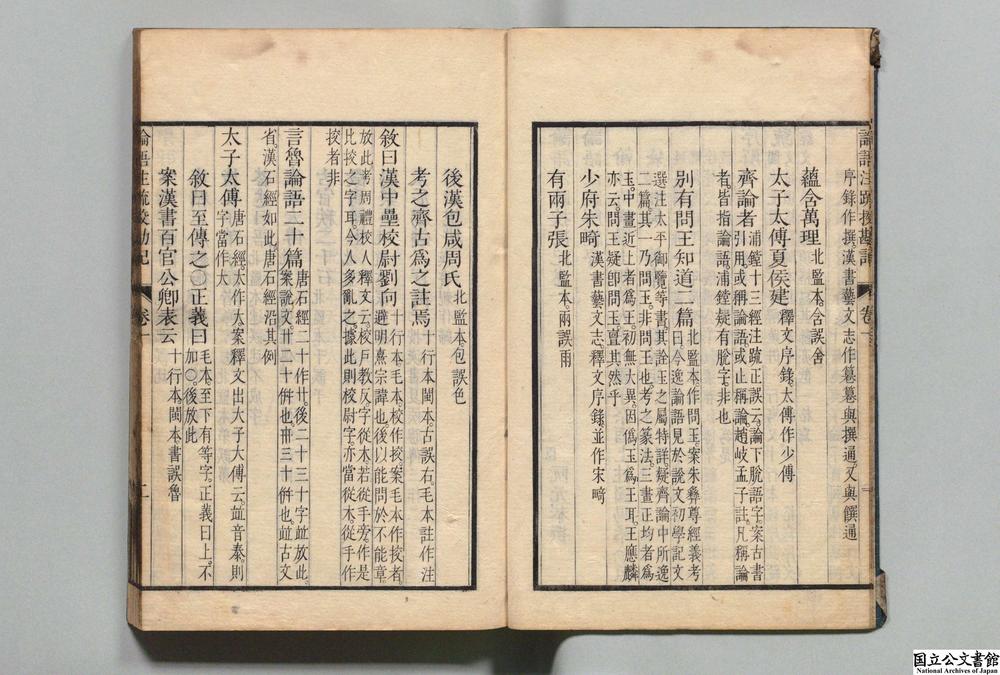 論語注疏挍勘記 卷一
序錄作撰漢書藝文志作篹篹與撰通又與饌通
蘊含萬理 北監本含誤舍
太子太傅夏侯建 釋文序錄太傅作少傅
齊論者 浦鏜十三經注疏正誤云論下脫語字案古書
引用或稱論語或止稱論趙岐孟子註凡稱論
者皆指論語浦鏜疑有脫字非也
別有問王知道二篇 北監本作問玉案朱彝尊經義考
曰今逸論語見於說文初學記文
選注太平御覽等書其詮玉之屬特詳疑齊論中所逸
二篇其一乃問玉非問王也考之篆法三畫正均者爲
玉中畫近上者爲王初無大異因僞玉爲王耳王應麟
亦云問王疑卽問玉亶其然乎
少府朱畸 漢書藝文志釋文序錄並作宋畸
有兩子張 北監本兩誤雨
後漢包咸周氏 北監本包誤色
考之齊古爲之註焉 十行本閩本古誤右毛本註作注
敘曰漢中壘校尉劉向 十行本毛本校作挍案毛本作挍者
避明熹宗諱也後以能問於不能章
放此考周禮校人釋文云校戶教反字從木若從手旁作是
比挍之字耳今人多亂之據此則校尉字亦當從木從手作
挍者非
言魯論語二十篇 唐石經二十作廿後二十三十字竝放此
案說文廿二十倂也丗三十倂也竝古文
省漢石經如此唐石經沿其例
太子太傅 唐石經太作大案釋文出大子大傅云竝音泰則
字當作大
敘曰至傳之〇正義曰 毛本至下有等字正義曰上不
加〇後放此
案漢書百官公卿表云 十行本閩本書誤魯
論語注疏挍勘記 卷一 二
国立公文書館
National Archives of Japan